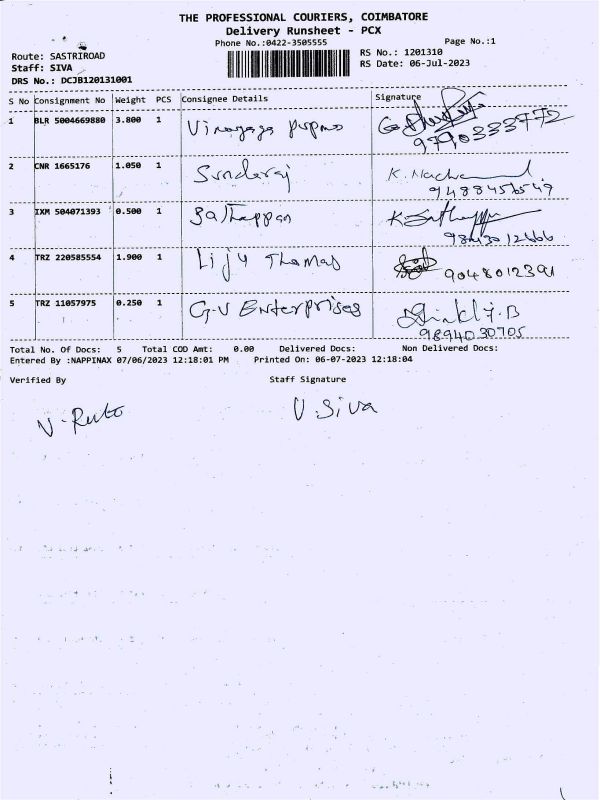 THE PROFESSIONAL COURIERS, COIMBATORE
Delivery Runsheet - PCX
Phone No.:0422-3505555
Page No.:1
Route: SASTRIROAD
Staff: SIVA
DRS No.: DCJB120131001
RS No.: 1201310
RS Date: 06-Jul-2023
S No Consignment No Weight PCS Consignee Details Signature
1 BLR 5004669880 3.800 1
9790333772
2 CNR 1665176 1.050 1 Sunderaj K.
9488456549
3 IXM 504071393 0.500 1 Sathappan K. Sathappan
4 TRZ 220585554 1.900 1 Liju Thomas 9048012391
5 TRZ 11057975 0.250 1 G.V Enterprises
9894030705
Total No. Of Docs: 5 Total COD Amt: 0.00 Delivered Docs: Non Delivered Docs:
Entered By :NAPPINAX 07/06/2023 12:18:01 PM Printed On: 06-07-2023 12:18:04
Verified By Staff Signature
V. Siva